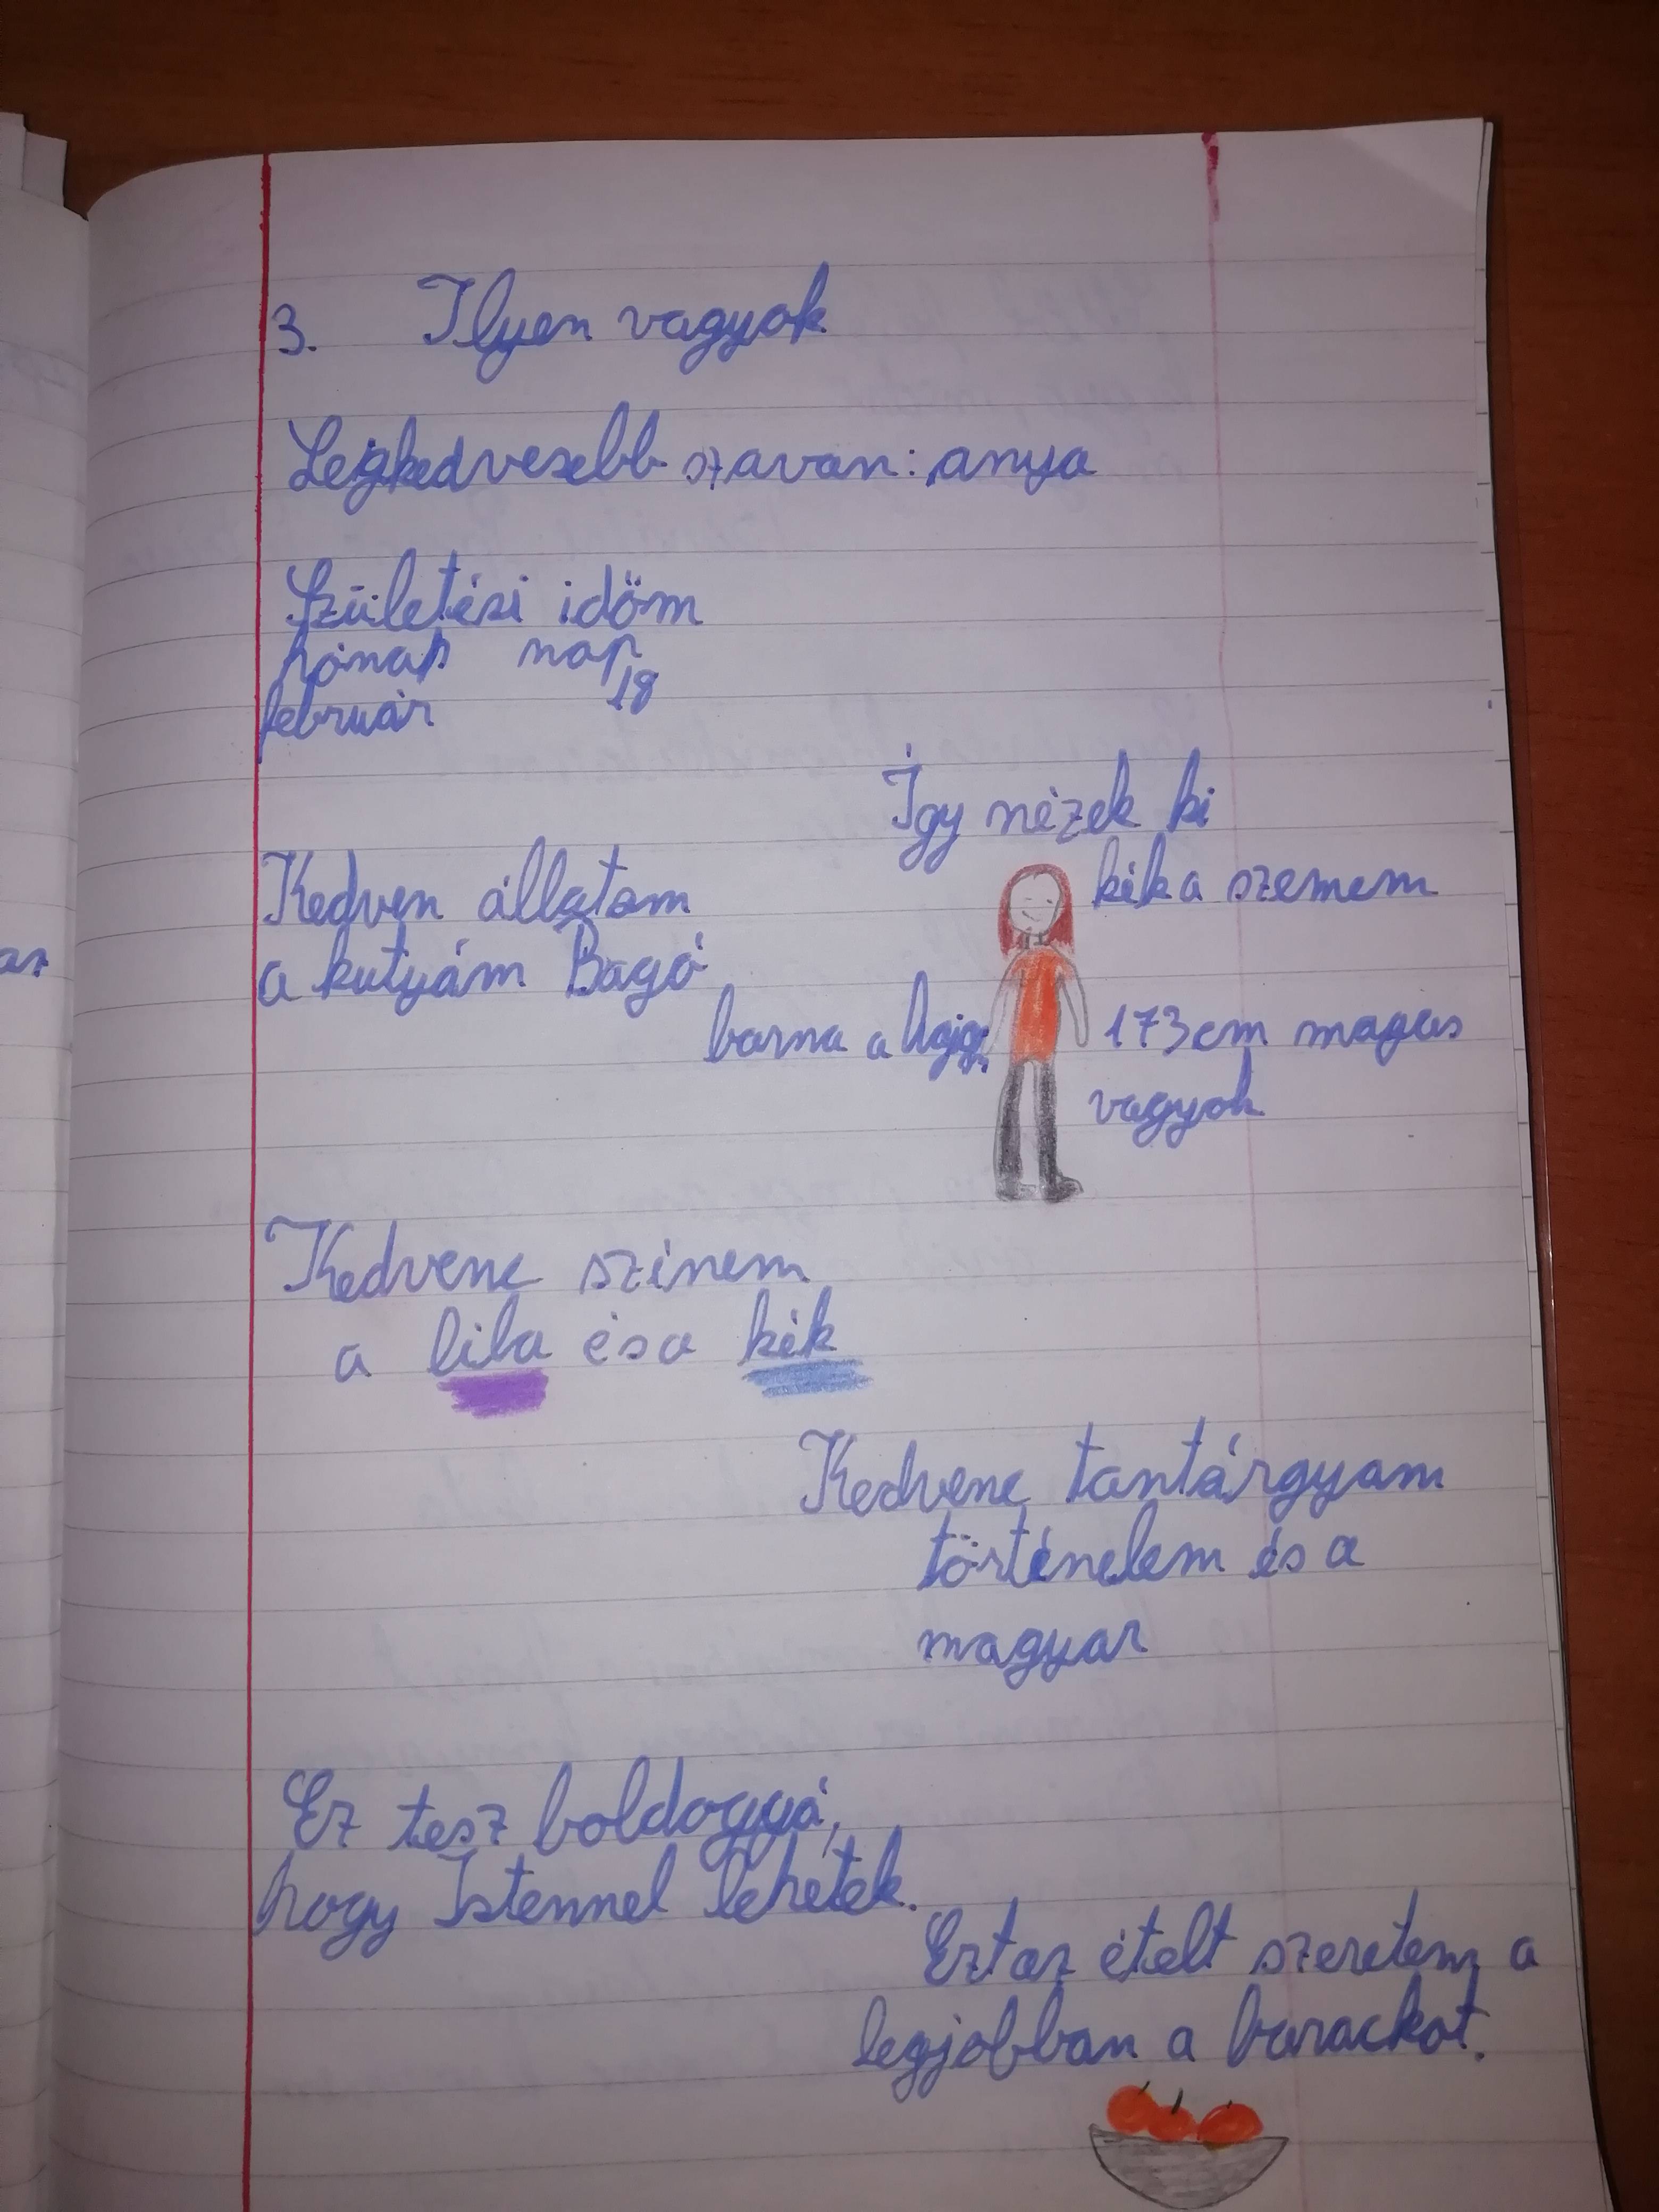 3. Ilyen vagyok
Legkedvesebb szavan: anya
Születési időm
hónap nap
18
február
Így nézek ki
kék a szemem
Kedven állatom
a kutyám Bagó
barna a
173cm magas
vagyok
Kedvenc szinem
a lila és a kék
Kedvenc tantárgyam
történelem és a
magyar
Ez tesz boldoggyá,
hogy Istennel lehetek.
Ezt az ételt szeretem a
legjobban a barackot.